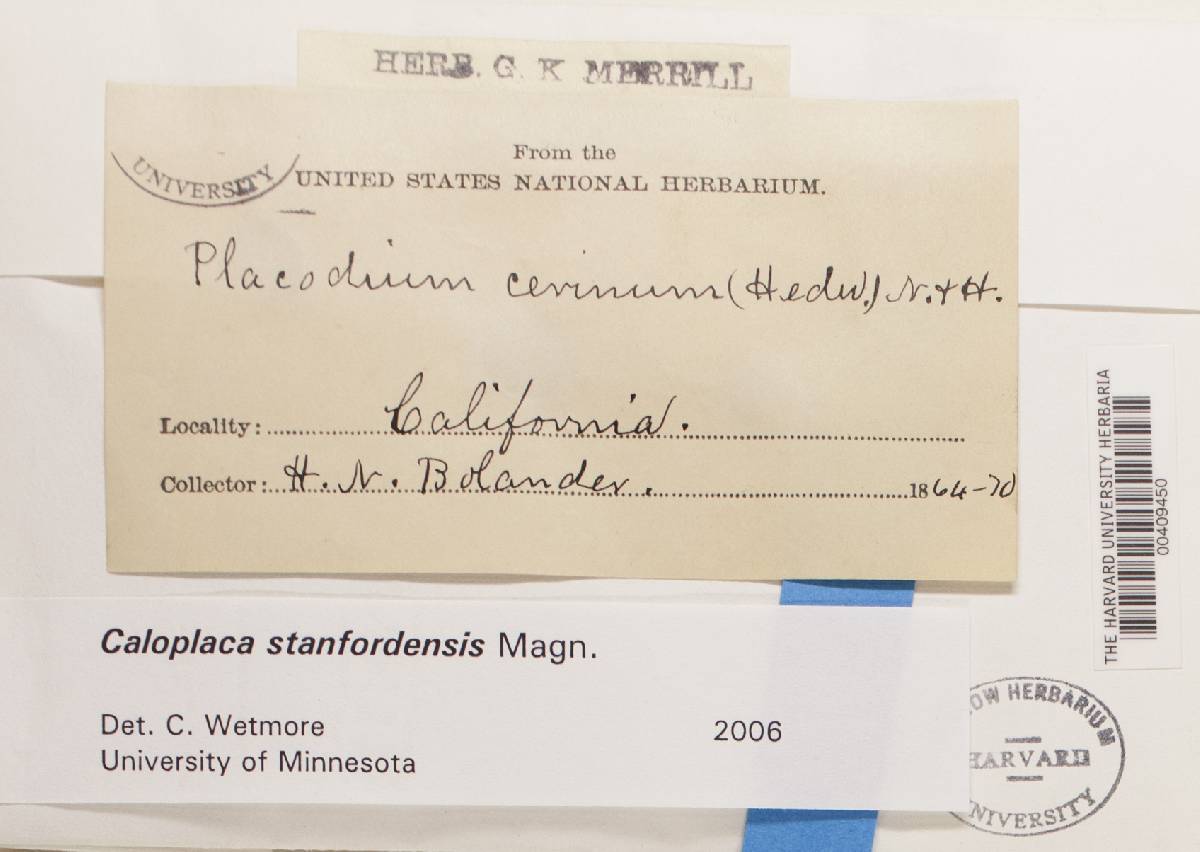 HERB. G. K MERRILL
From the
UNITED STATES NATIONAL HERBARIUM.
UNIVERSITY
Placodium cerinum (Hedw.) N. & H.
Locality: California.
Collector: H. N. Bolander. 1864-70
THE HARVARD UNIVERSITY HERBARIA
00409450
Caloplaca stanfordensis Magn.
Det. C. Wetmore 2006
University of Minnesota
OW HERBARIUM
HARVARD
UNIVERSITY